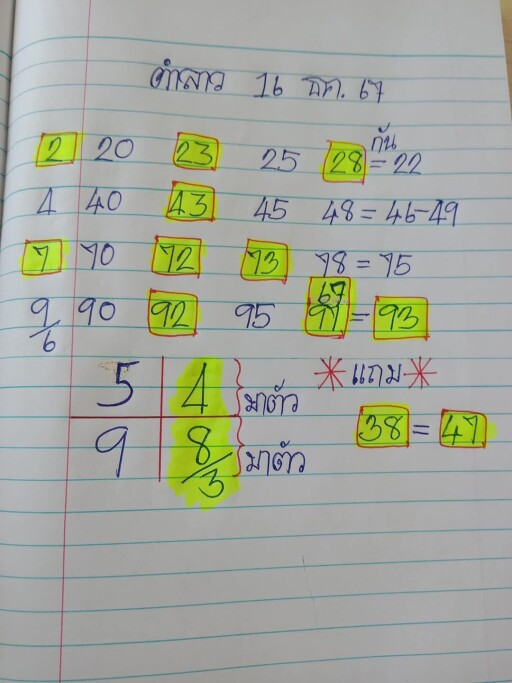 คำลาว 16 ธค. 67
กัน
2 20 23 25 28 = 22
4 40 43 45 48 = 46-49
7 70 72 73 78 = 75
67
9/6 90 92 95 97 = 93
5 4 มาตัว
* แถม *
9 8/3 มาตัว
38 = 47